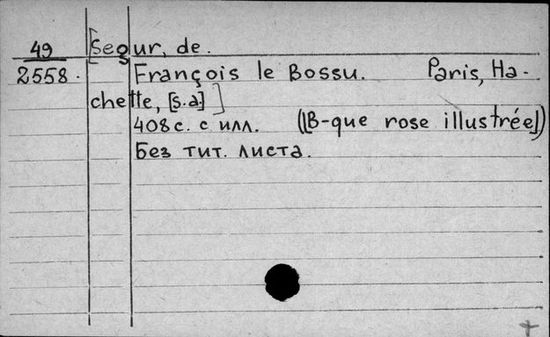 49 [Segur, de.
2558. François le Bossu. Paris, Ha-
chette, [s.a.]]
408 с. с илл. ([B-que rose illustrée])
Без тит. листа.